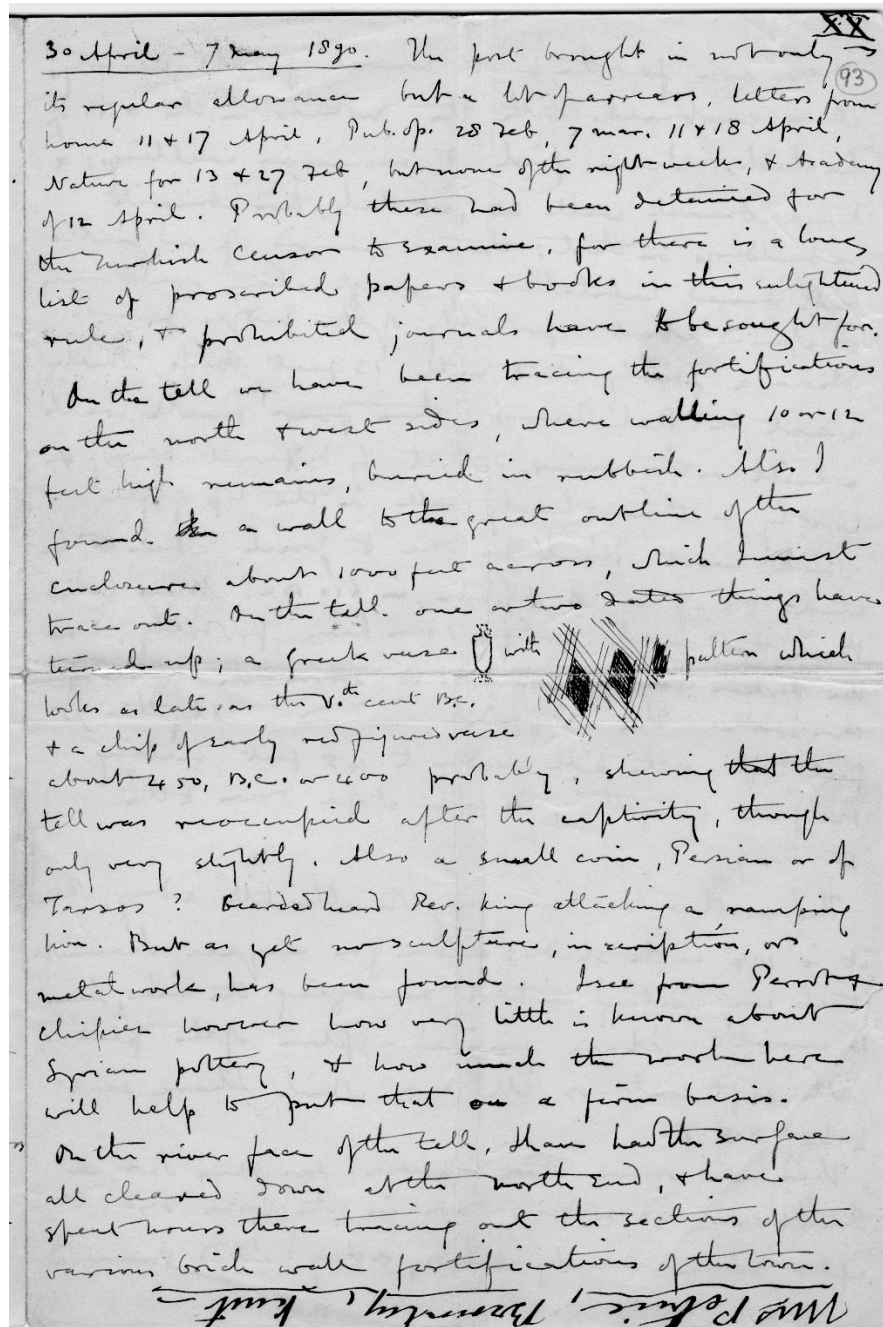 XX
93
30 April - 7 May 1890. The post brought in not only
its regular allowance but a lot of arrears, letters from
home 11 & 17 April, Pub. Op. 28 Feb, 7 Mar. 11 & 18 April,
Nature for 13 & 27 Feb, but none of the right weeks, & Academy
of 12 April. Probably these had been detained for
the Turkish Censor to examine, for there is a long
list of proscribed papers & books in this enlightened
rule, & prohibited journals have to be sought for.
On the tell we have been tracing the fortifications
on the north & west sides, where walling 10 or 12
feet high remains, buried in rubbish. Also I
found a wall to the great outline of the
enclosure about 1000 feet across, which I must
trace out. In the tell one or two dated things have
turned up; a greek vase with pattern which
looks as late as the V.th cent B.C.
& a chip of early red figured vase
about 450, B.C. or 400 probably, shewing that the
tell was reoccupied after the captivity, though
only very slightly. Also a small coin, Persian or of
Tarsos? Bearded head Rev. king attacking a ramping
lion. But as yet no sculpture, inscription, or
metal work, has been found. I see from Perrot &
Chipiez however how very little is known about
Syrian pottery, & how much the work here
will help to put that on a firm basis.
On the river face of the tell, I have had the surface
all cleared down at the north end, & have
spent hours there tracing out the sections of the
various brick wall fortifications of the town.
Mrs Petrie, Bromley, Kent